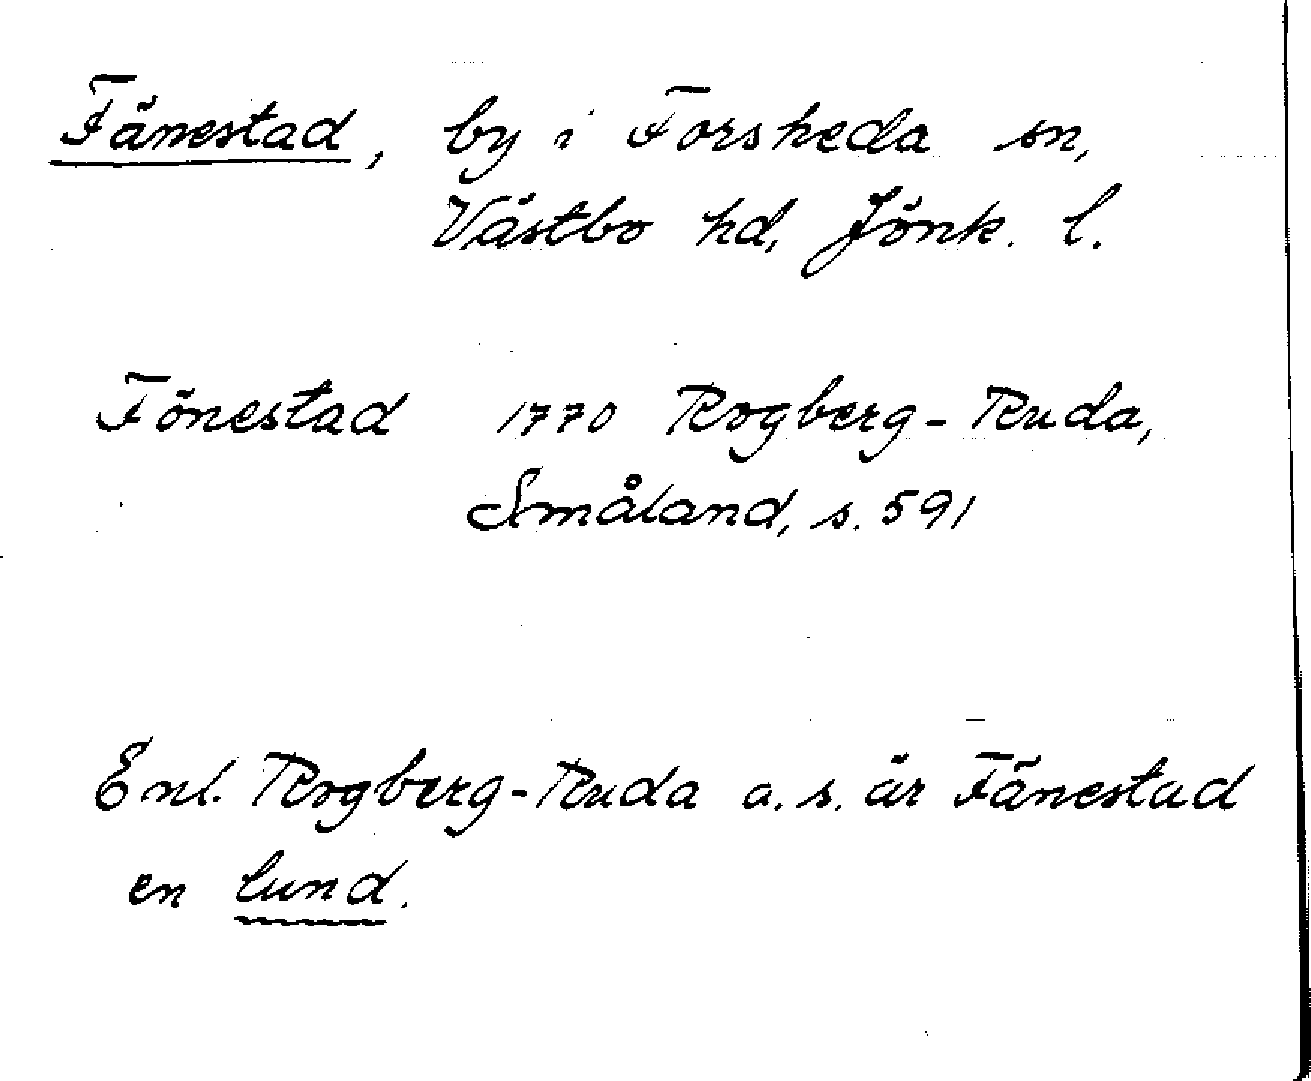 Fänestad, by i Forsheda sn,
Västbo hd, Jönk. l.
Fönestad 1770 Rogberg-Ruda,
Småland, s. 591
Enl. Rogberg-Ruda a. s. är Fänestad
en lund.